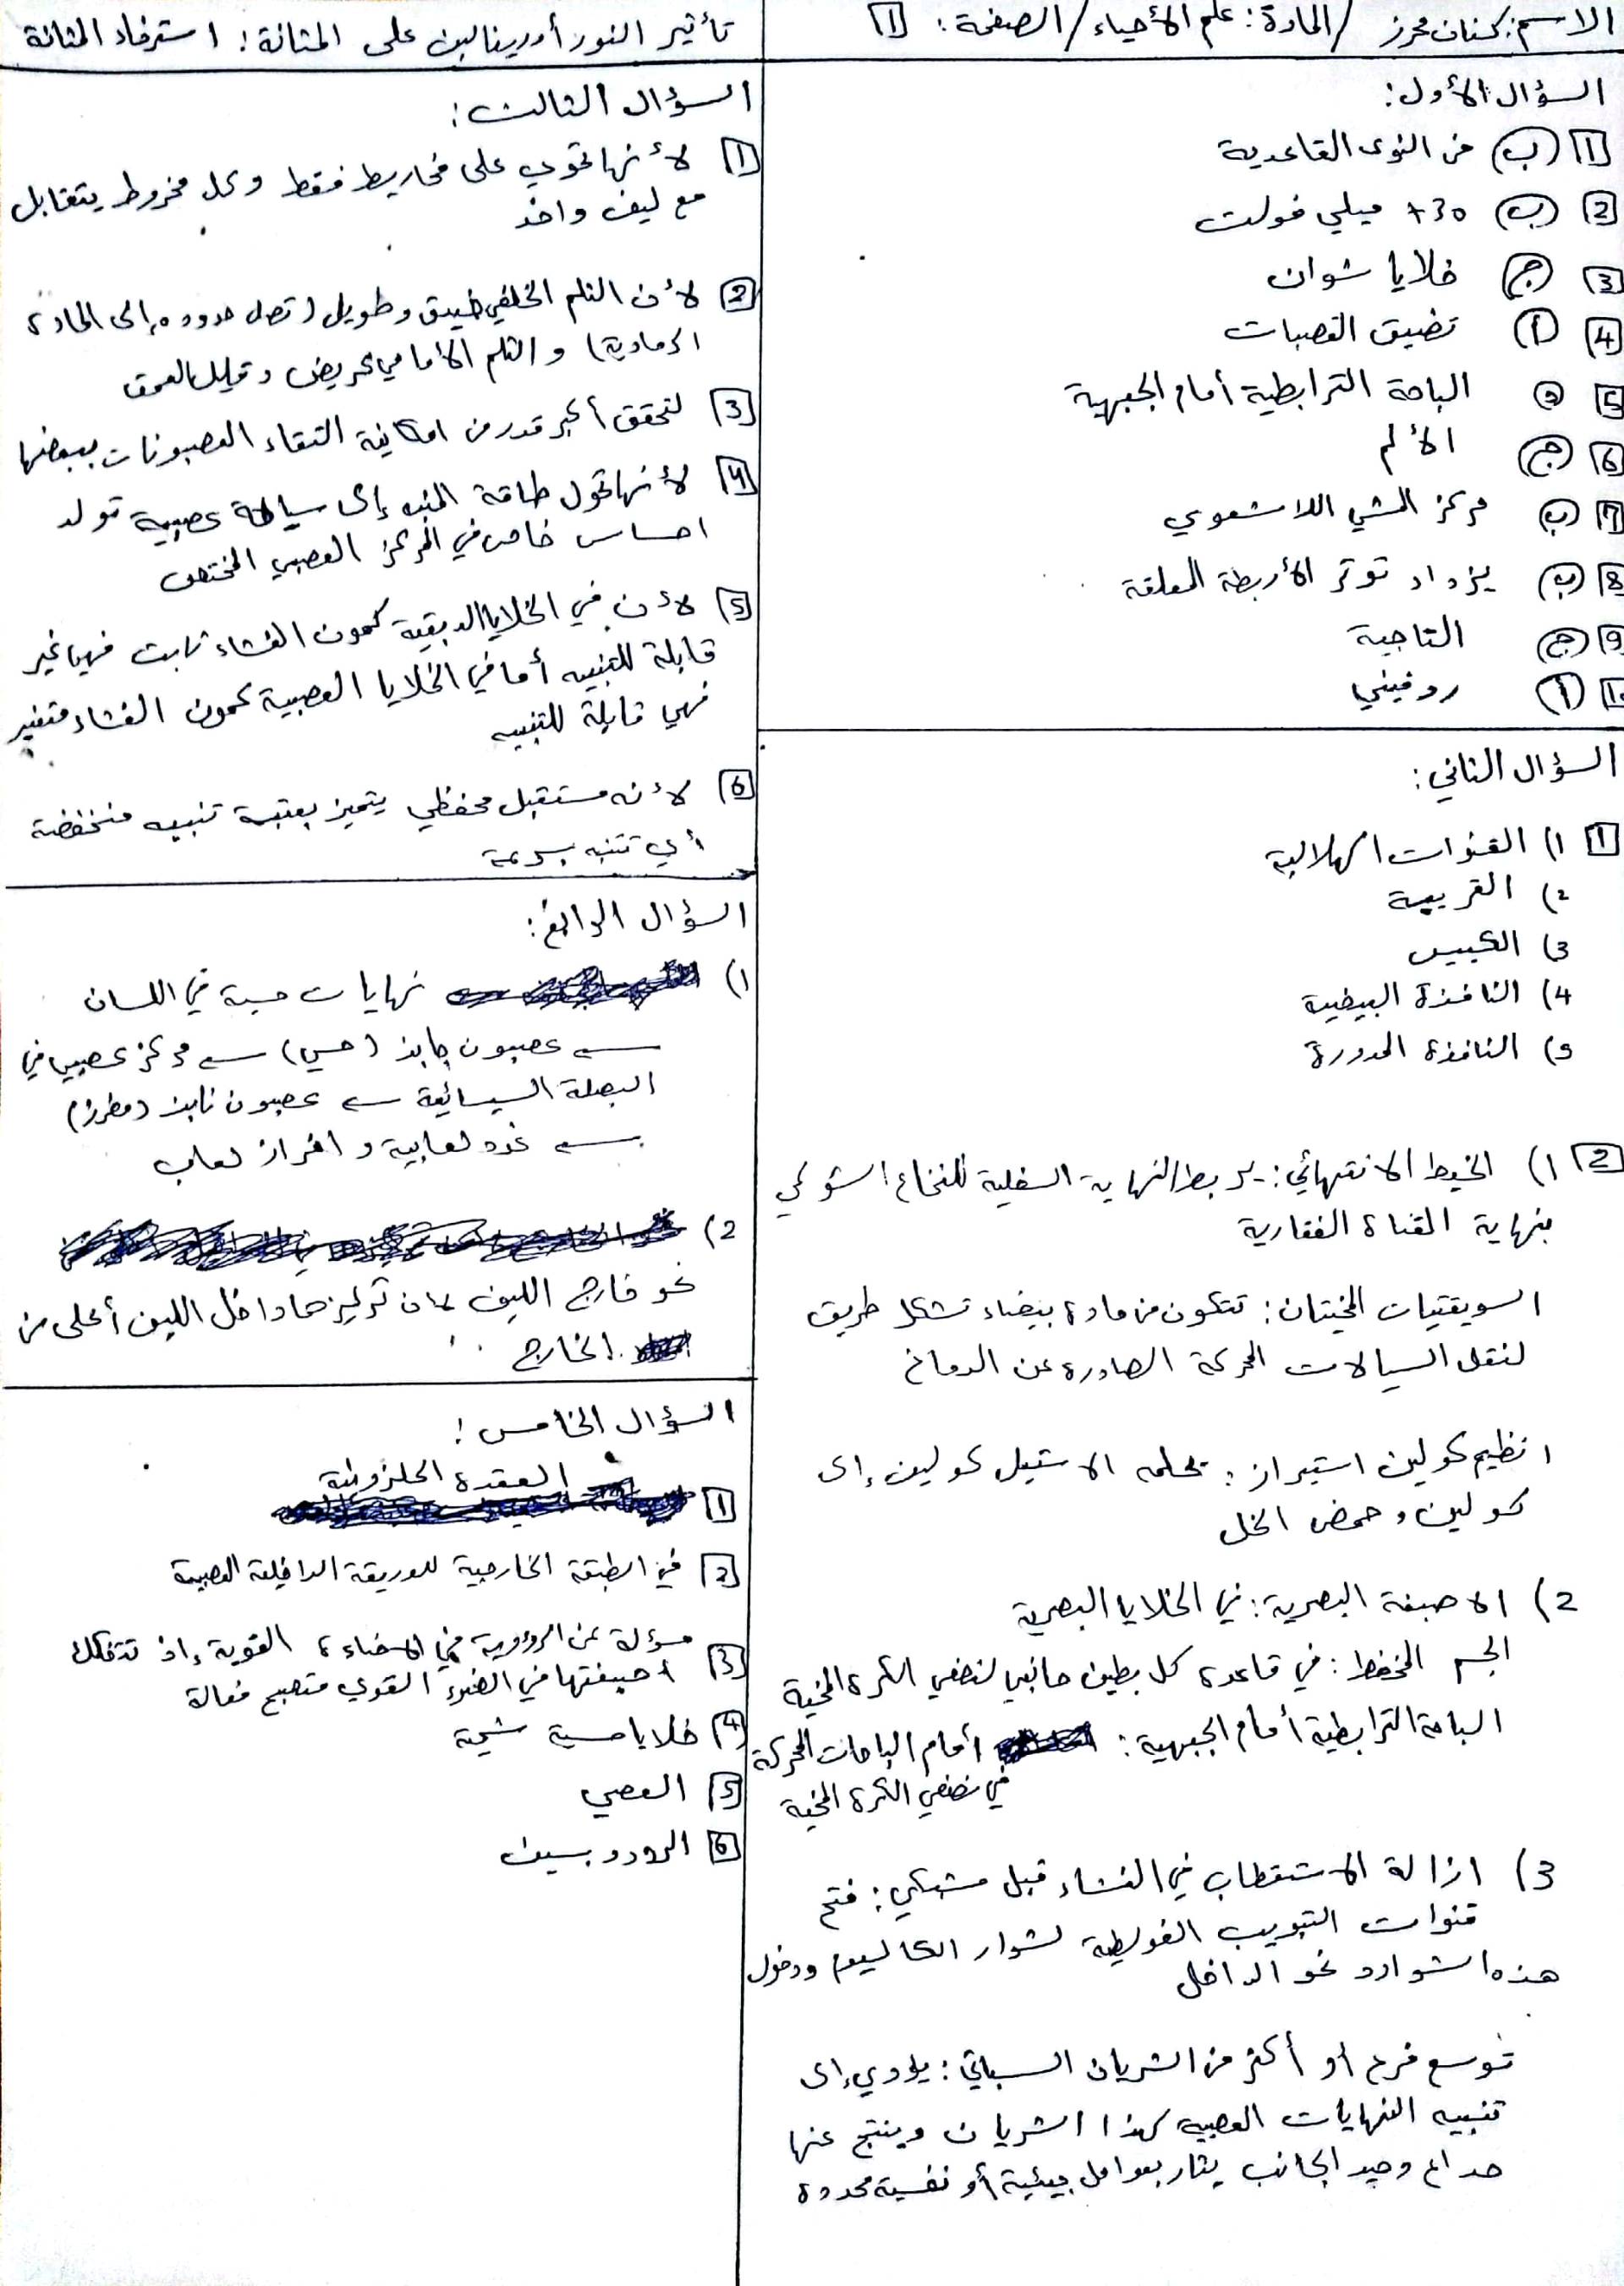 الاسم: كنان محرز / المادة: علم الأحياء / الصفحة: 1
السؤال الأول:
1 (ب) من النوى القاعدية
2 (ب) +30 ميلي فولت
3 (ج) خلايا شوان
4 (أ) تضيق القصبات
5 (د) الباحة الترابطية أمام الجبهية
6 (ج) الألم
7 (ب) مركز المشي اللاشعوري
8 (ب) يزداد توتر الأربطة المعلقة
9 (ج) التاجية
10 (أ) روفيني
السؤال الثاني:
1 1) القنوات الهلالية
2) القريبة
3) الكييس
4) النافذة البيضية
5) النافذة المدورة
2 1) الخيط الانتهائي: يربط النهاية السفلية للنخاع الشوكي
بنهاية القناة الفقارية
السويقتيات المخيتان: تتكون من مادة بيضاء تشكل طريق
لنقل السيالات المحركة الصادرة عن الدماغ
انظيم كولين استيراز: يحلمه الاستيل كولين إلى
كولين وحمض الخل
2) الاصبغة البصرية: في الخلايا البصرية
الجسم المخطط: في قاعدة كل بطين جانبي لنصفي الكرة المخية
الباحة الترابطية أمام الجبهية: أمام الباحات المحركة
في نصفي الكرة المخية
3) ازالة الاستقطاب في الغشاء قبل مشبكي: فتح
قنوات التبويب الفولطية لشوارد الكالسيوم ودخول
هذه الشوارد نحو الداخل
توسع فرع أو أكثر من الشريان السباتي: يؤدي إلى
تنبيه النهايات العصبية لهذا الشريان وينتج عنها
صداع وحيد الجانب يثار بعوامل بيئية أو نفسية محددة
تأثير النور أدرينالين على المثانة: استرخاء المثانة
السؤال الثالث:
1 لأنها تحوي على مخاريط فقط وكل مخروط يتقابل
مع ليف واحد
2 لأن الثلم الخلفي ضيق وطويل (تصل حدوده إلى المادة
الرمادية) والثلم الأمامي عريض وقليل العمق
3 لتحقق أكبر قدر من امكانية التقاء العصبونات ببعضها
4 لأنها تحول طاقة المنبه إلى سيالة عصبية تولد
احساس خاص في المركز العصبي المختص
5 لأن في الخلايا الدبقية كمون الغشاء ثابت فهي غير
قابلة للتنبيه أما في الخلايا العصبية كمون الغشاء متغير
فهي قابلة للتنبيه
6 لأنه مستقبل محفظي يتميز بعتبة تنبيه منخفضة
أي تتنبه بسرعة
السؤال الرابع:
1) نهايات حسية في اللسان
← عصبون جابذ (حسي) ← مركز عصبي في
البصلة السيسائية ← عصبون نابذ (مفرز)
← غدد لعابية و افراز لعاب
2)
نحو خارج الليف لأن تركيزها داخل الليف أعلى من
الخارج
السؤال الخامس:
1 العقدة الحلزونية
2 في الطبقة الخارجية للوريقة الداخلية العصبية
3 مسؤلة عن الرؤية في الاضاءة القوية إذ تتفكك
أصبغتها في الضوء القوي فتصبح فعالة
4 خلايا حسية شمية
5 العصي
6 الرودوبسين